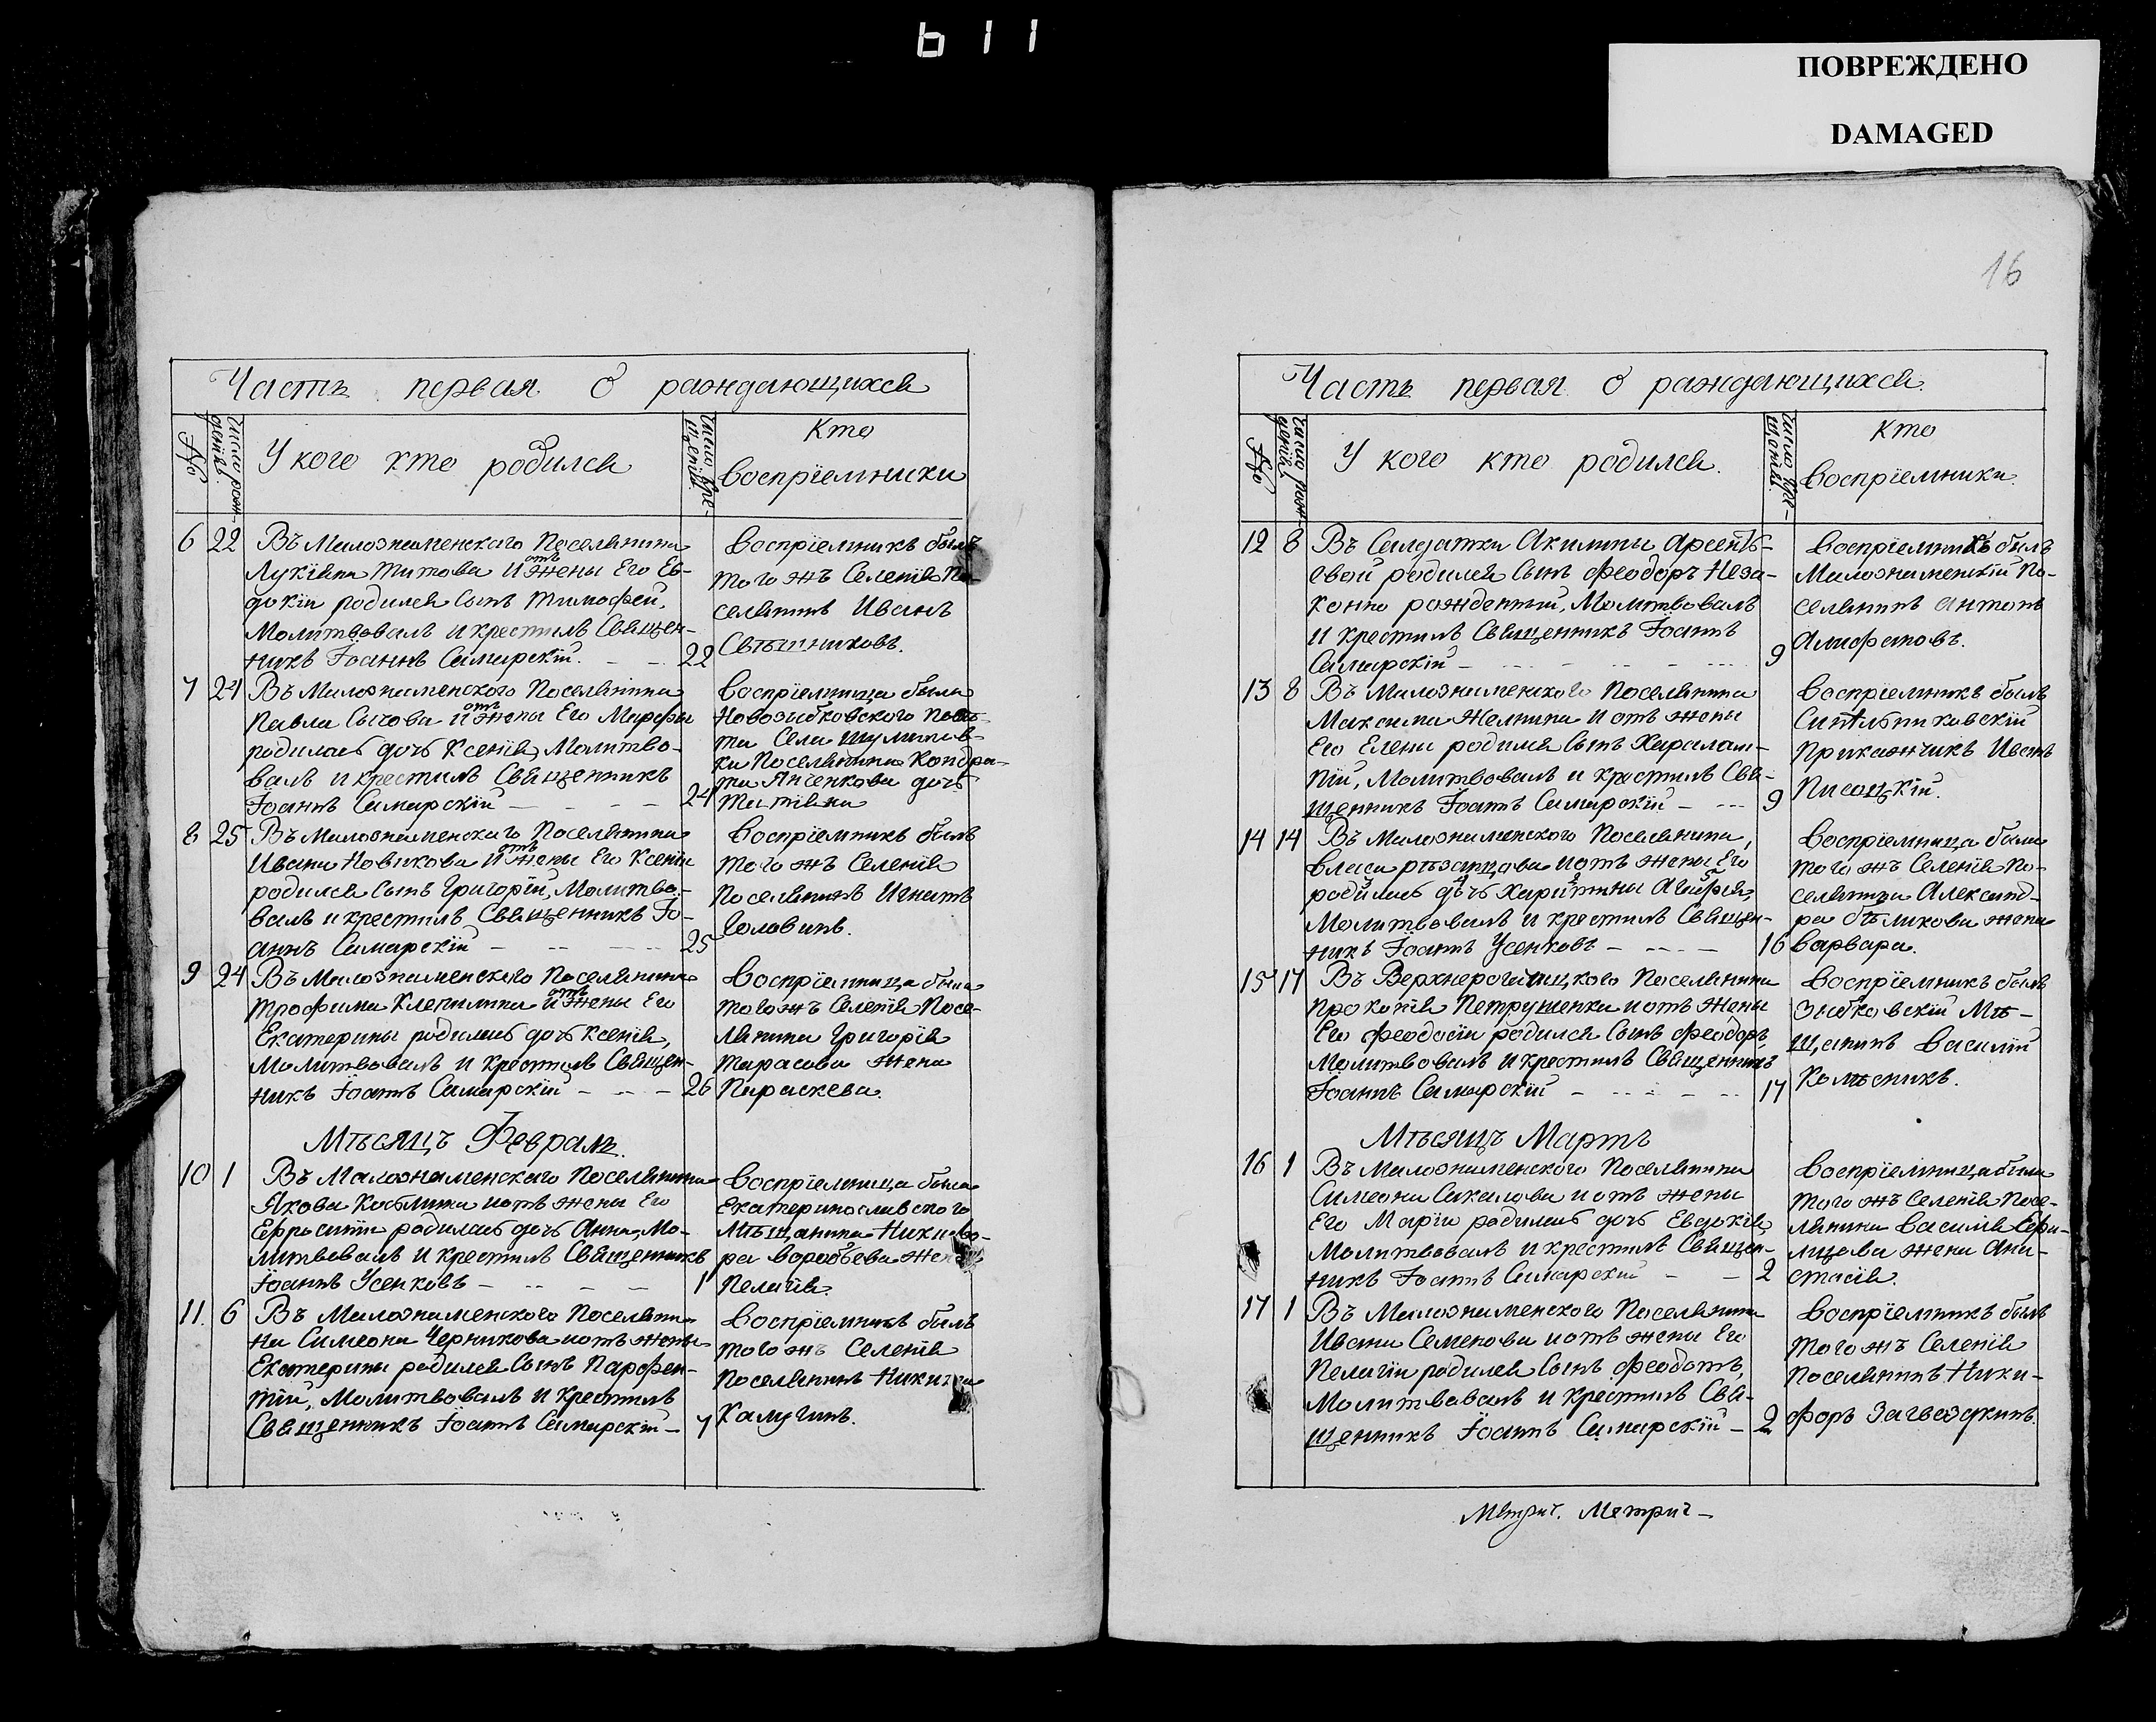 611
ПОВРЕЖДЕНО
DAMAGED
Часть первая о раждающихся
№
Число рож-
денія.
У кого кто родился
Число кре-
щенія.
Кто
восприемники
6 22 Въ Малознаменскаго Поселянина
Лукіяна Титова и отъ Жены Его Ев-
докіи родился Сынъ Тимофей,
Молитвовалъ и крестилъ Священ-
никъ Іоаннъ Самарскій. 22
Восприемникъ былъ
того жъ Селенія По-
селянинъ Иванъ
7 24 Въ Малознаменского Поселянина
Павла Сычова и отъ жены Его Марфы
родилась дочь Ксенія, Молитво-
валъ и крестилъ Священникъ
Іоаннъ Самарскій 24
Восприемница была
Новозыбковского
та Села
ки Поселянина Кондра-
та Янченкова дочь
Татіяна
8 25 Въ Малознаменскаго Поселянина
Ивана Новикова и отъ Жены Его Ксеніи
родился Сынъ Григорій, Молитво-
валъ и крестилъ Священникъ Іо-
аннъ Самарскій 25
Восприемникъ былъ
того жъ Селенія
Поселянинъ Игнатъ
Головинъ.
9 24 Въ Малознаменского Поселянина
Трофима Клепилина и отъ Жены Его
Екатерины родилась дочь Ксенія,
Молитвовалъ и крестилъ Священ-
никъ Іоаннъ Самарскій 26
Восприемница была
того жъ Селенія Посе-
лянина Григорія
Тарасова Жена
Параскева.
Мѣсяцъ Февраль.
10 1 Въ Малознаменского Поселянина
Якова Костина и отъ жены Его
Ефросиніи родилась дочь Анна, Мо-
литвовалъ и крестилъ Священникъ
Іоаннъ Усенковъ 1
Восприемница была
Екатеринославского
Мѣщанина Никифо-
ра Воробьева Жена
Пелагія.
11. 6 Въ Малознаменского Поселяни-
на Симеона Черникова и отъ жены
Екатерины родился Сынъ Парфен-
тій, Молитвовалъ и крестилъ
Священникъ Іоаннъ Самарскій 7
Восприемникъ былъ
того жъ Селенія
Поселянинъ Никита
Калугинъ.
16
Часть первая о раждающихся.
№
Число рож-
денія.
У кого кто родился.
Число кре-
щенія.
Кто
восприемники.
12 8 Въ Салдатки Акилины Арсентѣ-
евой родился Сынъ Феодоръ Неза-
конно рожденный, Молитвовалъ
и крестилъ Священникъ Іоаннъ
Самарскій 9
Восприемникъ былъ
Малознаменскій По-
селянинъ Антонъ
Агафоновъ.
13 8 Въ Малознаменского Поселянина
Максима Желнина и отъ жены
Его Елены родился Сынъ Харалам-
пій, Молитвовалъ и крестилъ Свя-
щенникъ Іоаннъ Самарскій 9
Восприемникъ былъ
Прикажчикъ Иванъ
Писацкій.
14 14 Въ Малознаменского Поселянина,
Власа Рѣзанцова и отъ жены Его
родилась дочь Харитины Агафія,
Молитвовалъ и крестилъ Священ-
никъ Іоаннъ Усенковъ 16
Восприемница была
того жъ Селенія По-
селянина Александ-
ра Бѣликова жена
Варвара.
15 17 Въ Верхнерогачицкого Поселянина
Прокопія Петрушенки и отъ жены
Его Феодосіи родился Сынъ Феодоръ,
Молитвовалъ и крестилъ Священникъ
Іоаннъ Самарскій 17
Восприемникъ былъ
Зыбковскій Мѣ-
щанинъ Василій
Колѣсникъ.
Мѣсяцъ Мартъ
16 1 Въ Малознаменского Поселянина
Симеона Сакалова и отъ жены
Его Маріи родилась дочь Евдокія,
Молитвовалъ и крестилъ Священ-
никъ Іоаннъ Самарскій 2
Восприемница была
того жъ Селенія Посе-
лянина Василія
жена Ана-
стасія.
17 1 Въ Малознаменского Поселянина
Ивана Семенова и отъ жены Его
Пелагіи родился Сынъ Феодотъ,
Молитвовалъ и крестилъ Свя-
щенникъ Іоаннъ Самарскій 2
Восприемникъ былъ
того жъ Селенія
Поселянинъ Ники-
форъ Загвоздкинъ.
Метрич. Метрич